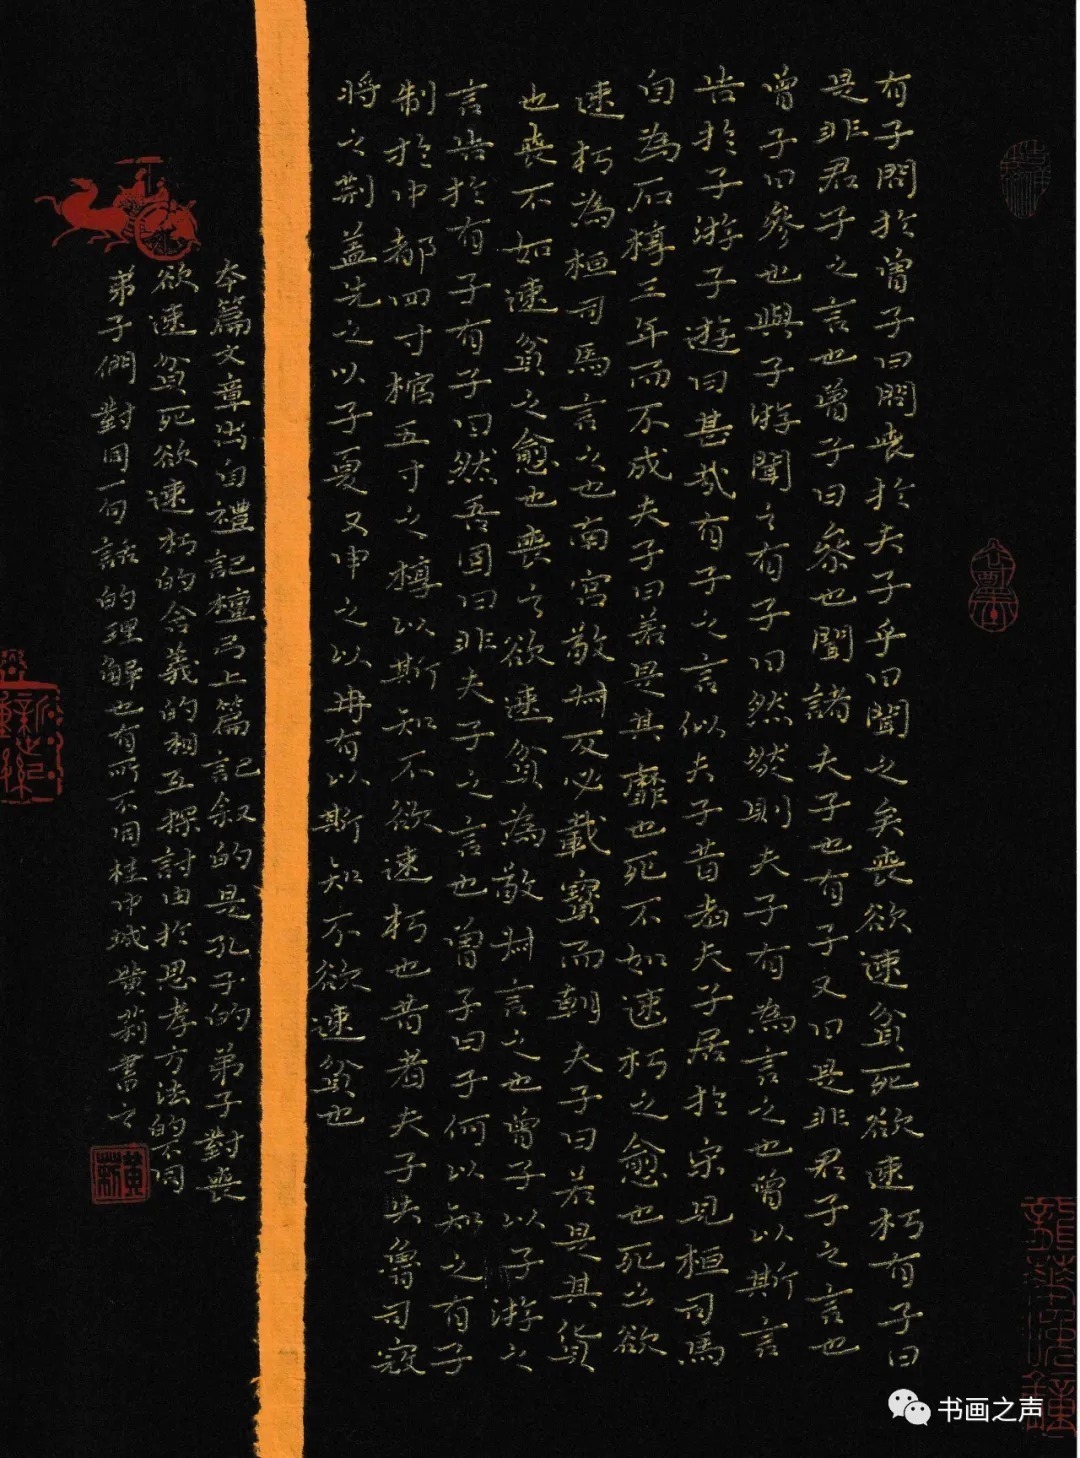 有子問於曾子曰問喪於夫子乎曰聞之矣喪欲速貧死欲速朽有子曰
是非君子之言也曾子曰參也聞諸夫子也有子又曰是非君子之言也
曾子曰參也與子游聞之有子曰然然則夫子有為言之也曾以斯言
告於子游子遊曰甚哉有子之言似夫子昔者夫子居於宋見桓司馬
自為石槨三年而不成夫子曰若是其靡也死不如速朽之愈也死之欲
速朽為桓司馬言之也南宮敬叔反必載寶而朝夫子曰若是其貨
也喪不如速貧之愈也喪之欲速貧為敬叔言之也曾子以子游之
言告於有子有子曰然吾固曰非夫子之言也曾子曰子何以知之有子
制於中都四寸棺五寸之槨以斯知不欲速朽也昔者夫子失魯司寇
將之荊蓋先之以子夏又申之以冉有以斯知不欲速貧也
本篇文章出自禮記檀弓上篇記叙的是孔子的弟子對喪
欲速貧死欲速朽的含義的相互探討由於思考方法的不同
弟子們對同一句話的理解也有所不同桂中城黄莉書之
黄莉
书画之声